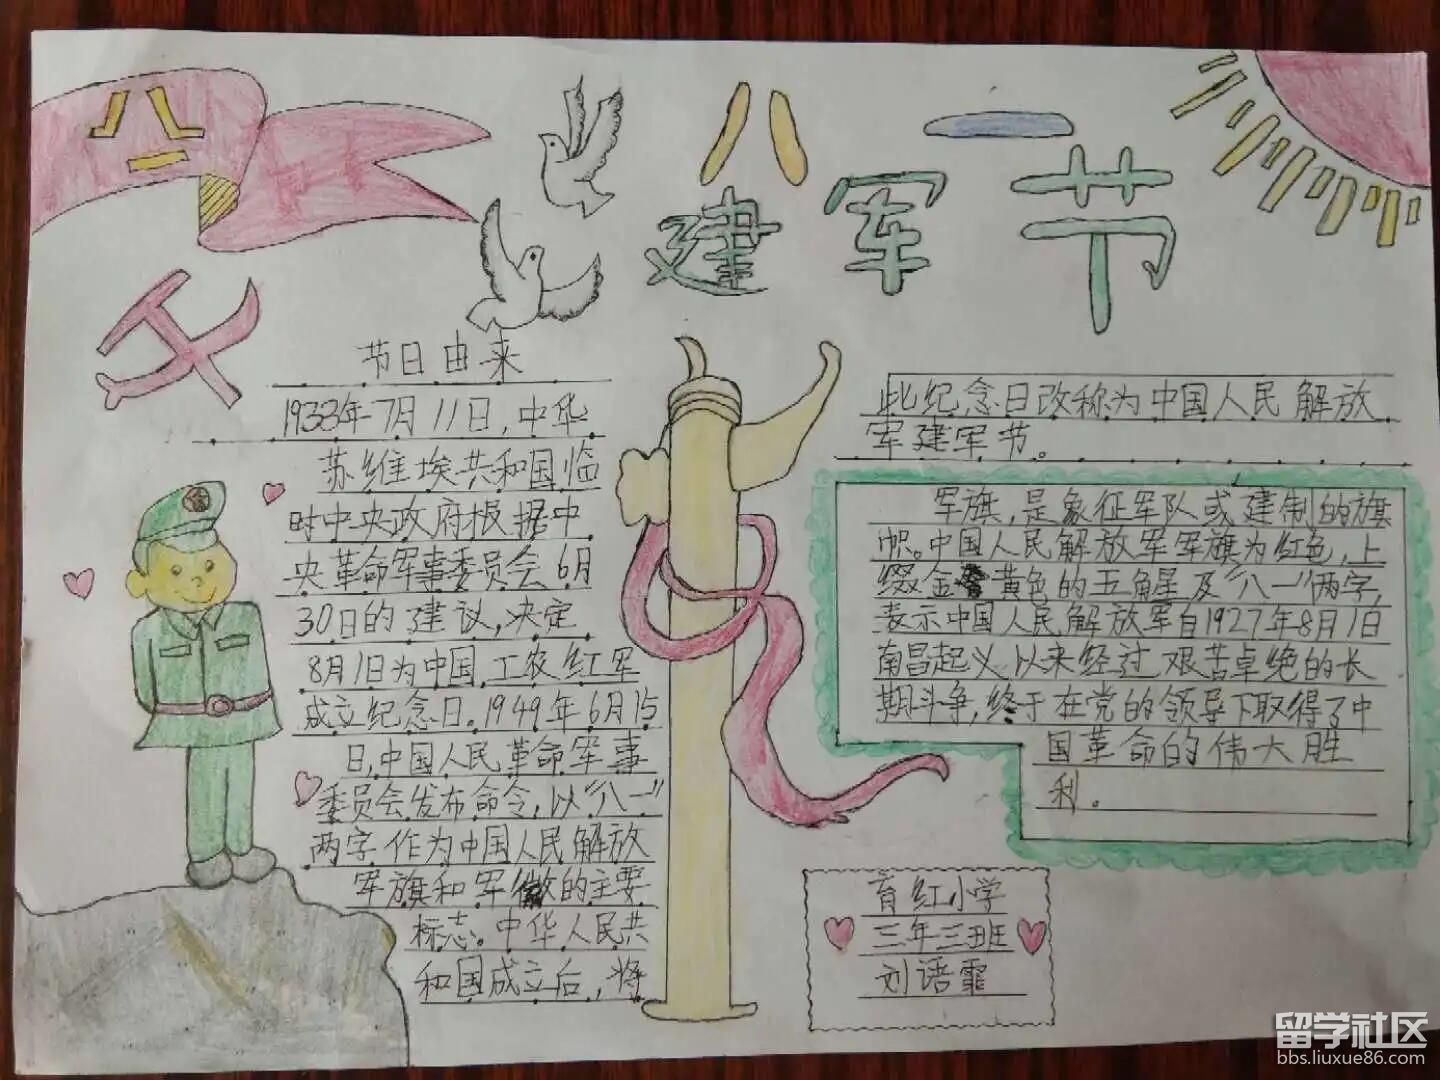 八一
八一
建军节
节日由来
1933年7月11日,中华
苏维埃共和国临
时中央政府根据中
央革命军事委员会6月
30日的建议,决定
8月1日为中国工农红军
成立纪念日。1949年6月15
日,中国人民革命军事
委员会发布命令,以"八一"
两字作为中国人民解放
军旗和军徽的主要
标志。中华人民共
和国成立后,将
此纪念日改称为中国人民解放
军建军节。
军旗,是象征军队或建制的旗
帜。中国人民解放军军旗为红色,上
缀金黄色的五角星及"八一"两字,
表示中国人民解放军自1927年8月1日
南昌起义以来经过艰苦卓绝的长
期斗争,终于在党的领导下取得了中
国革命的伟大胜
利。
育红小学
三年三班
刘语霏
留学社区
bbs.liuxue86.com